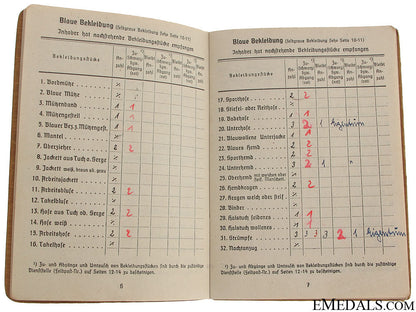 Blaue Bekleidung (feldgraue Bekleidung siehe Seite 10-11)
Inhaber hat nachstehende Bekleidungsstücke empfangen
Bekleidungsstücke
1. Bordmütze
2. Blaue Mütze
3. Mützenband 1 1
4. Mützengestell 1
5. Blauer Bez. z. Mützengest. 1
6. Mantel
7. Überzieher 2 2
8. Jackett aus Tuch o. Serge
9. Jackett weiß, braun
10. Arbeitsjackett
11. Arbeitshemd 2 2
12. Takelbluse
13. Hose aus Tuch od. Serge 2 2
14. Hose weiß
15. Arbeitshose 2 2
16. Takelhose
¹) Zu- und Abgänge und Umtausch von Bekleidungsstücken sind durch die zuständige
Dienststelle (Feldpost-Nr.) auf Seiten 12-14 zu bescheinigen.
6
Blaue Bekleidung (feldgraue Bekleidung siehe Seite 10-11)
Inhaber hat nachstehende Bekleidungsstücke empfangen
Bekleidungsstücke
17. Sporthose 2 2
18. Stiefel- oder Reithose
19. Badehose 1
20. Unterhose 3 2 1 Eigentum
21. Blauwollene Unterjacke
22. Blauhemd 2 2
23. Sporthemd 2 2
24. Unterhemd 3 2 1
25. Oberhemd
26. Hemdkragen 2 2
27. Kragen weich oder steif
28. Binder
29. Halstuch seiden 1
30. Halstuch wollen 1
31. Strümpfe 3 3 3 2 1 Eigentum
32. Nachtanzug
¹) Zu- und Abgänge und Umtausch von Bekleidungsstücken sind durch die zuständige
Dienststelle (Feldpost-Nr.) auf Seiten 12-14 zu bescheinigen.
7
EMEDALS.COM